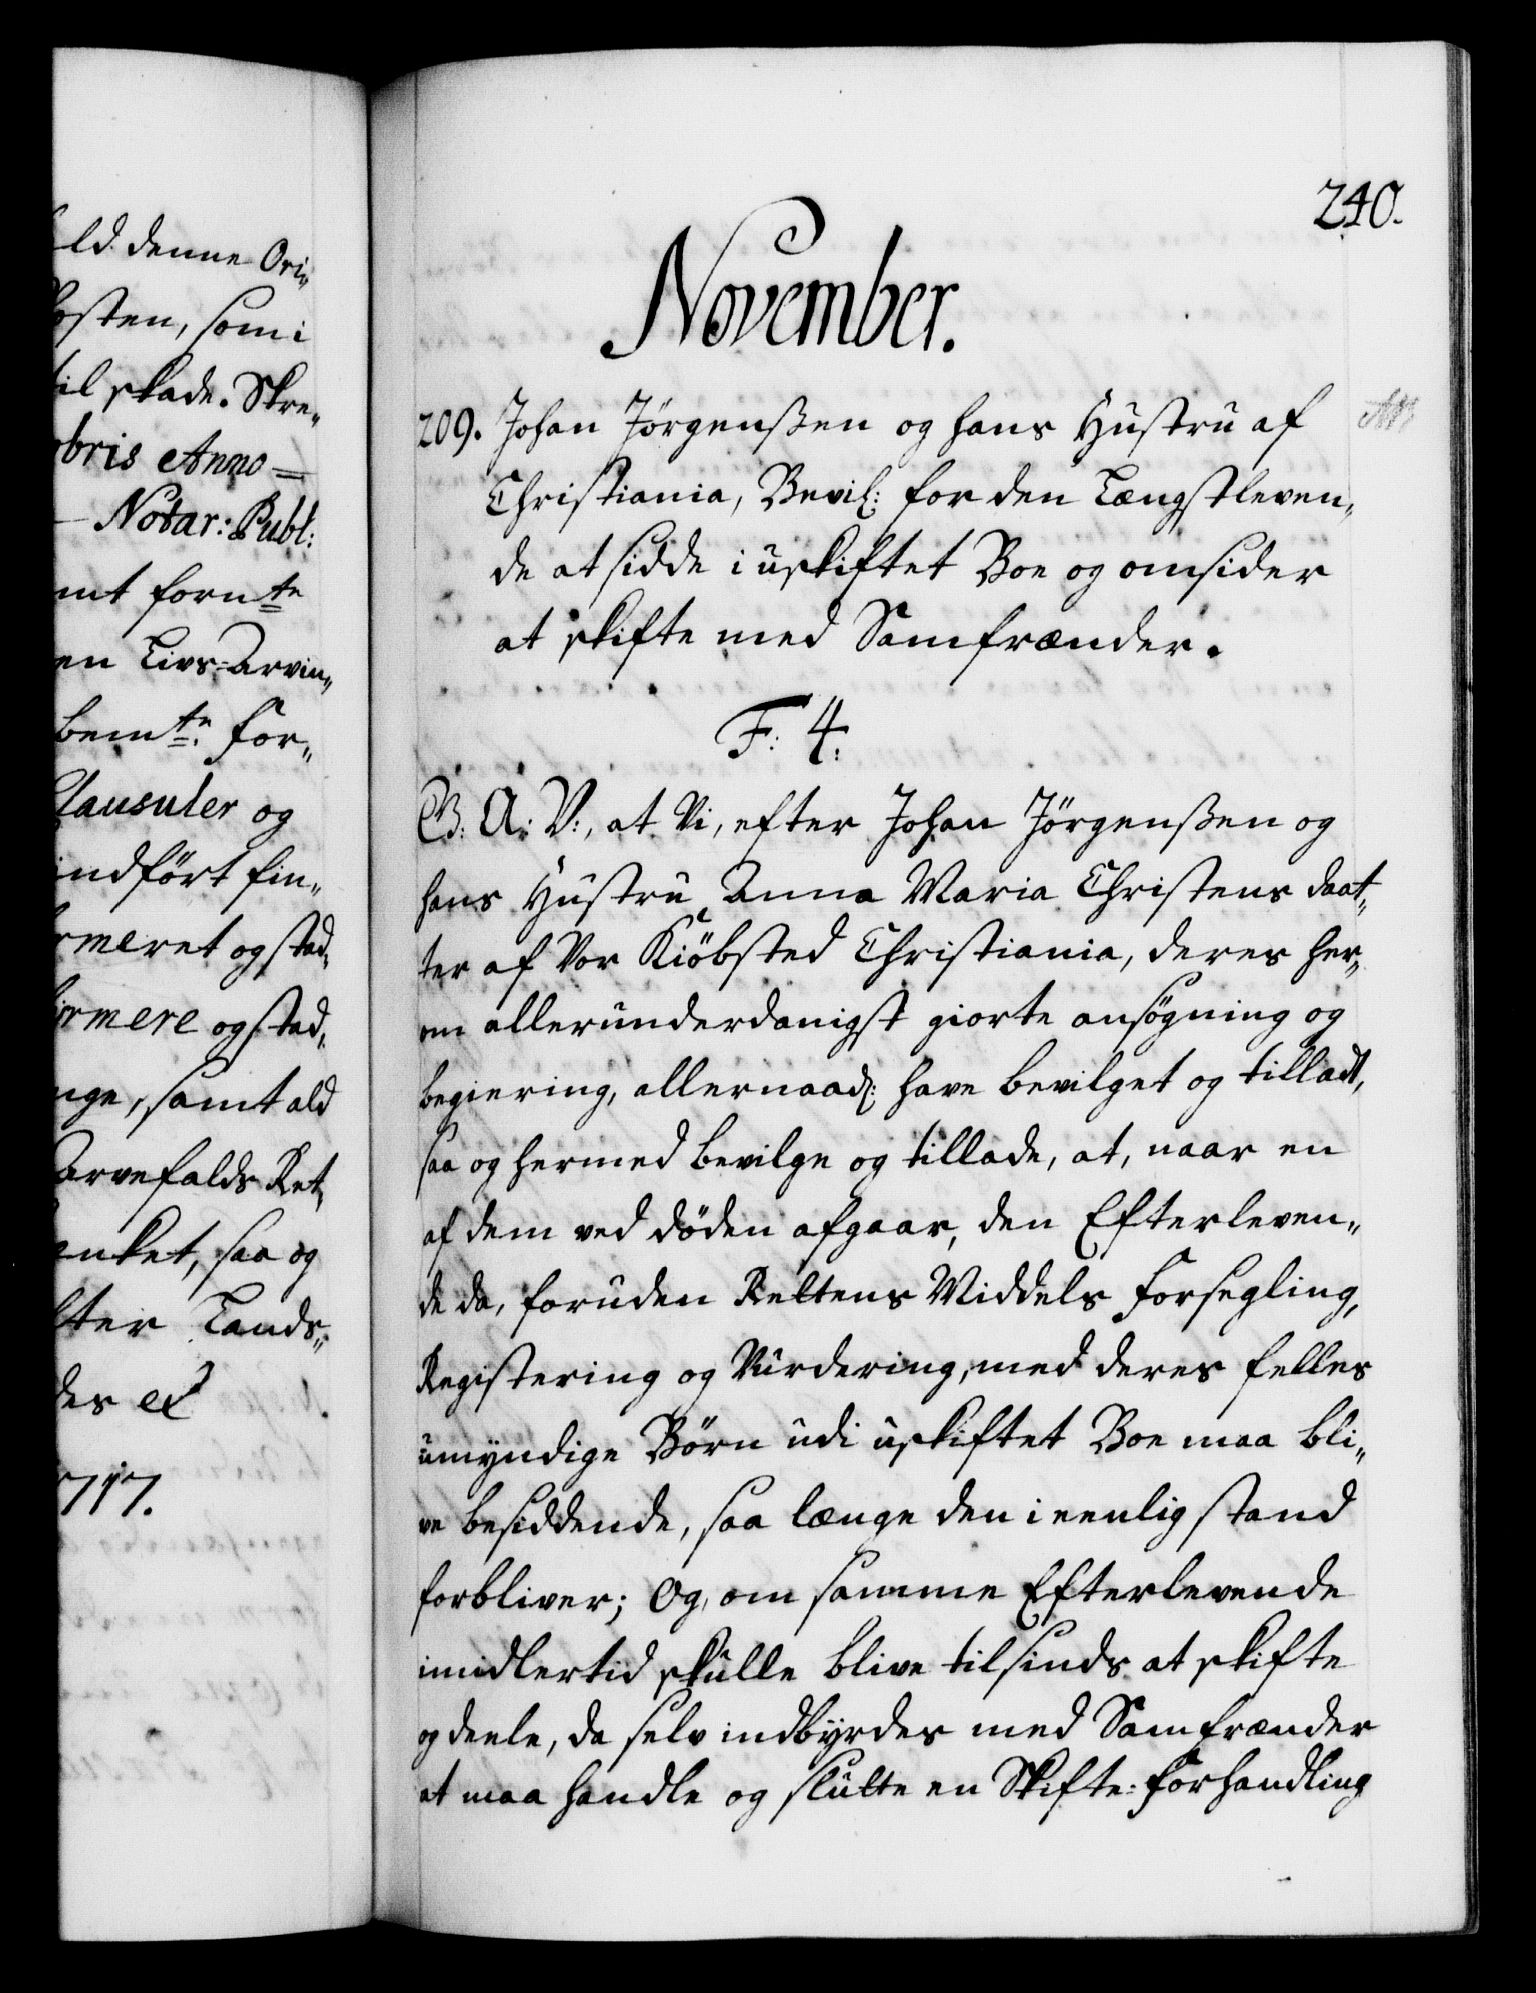 ld denne Ori„
osten, som i
til skade. Skre„
bris Anno=
— Notar: Publ:
mt fornte
en Livs=Arvin„
bemte. for„
Clausuler og
indført fin„
rmeret og stad„
firmere og stad„
nge, samt ald
Arvefalds Ret„
nket, saa og
ter Lands„
des ex
1717.
240.
November.
209. Johan Jørgenßen og hans Hustru af
Christiania, Bevil: for den Længstleven„
de at sidde i uskiftet Boe og omsider
at skifte med Samfrænder.
F: 4:
G: A: V:, at Vi, efter Johan Jørgenßen og
hans Hustru Anna Maria Christens daat„
ter af Vor Kiøbsted Christiania, deres her„
om allerunderdanigst giorte ansøgning og
begiering, allernaad: have bevilget og tilladt,
saa og hermed bevilge og tillade, at, naar en
af dem ved døden afgaar, den Efterleven„
de da, foruden Rettens Middels Forsegling,
Registering og Vurdering, med deres felles
umyndige Børn udi uskiftet Boe maa bli„
ve besiddende, saa længe den i eenlig stand
forbliver; Og, om samme Efterlevende
imidlertid skulle blive tilsinds at skifte
og deele, da selv indbyrdes med Samfrænder
at maa handle og slutte en Skifte=Forhandling